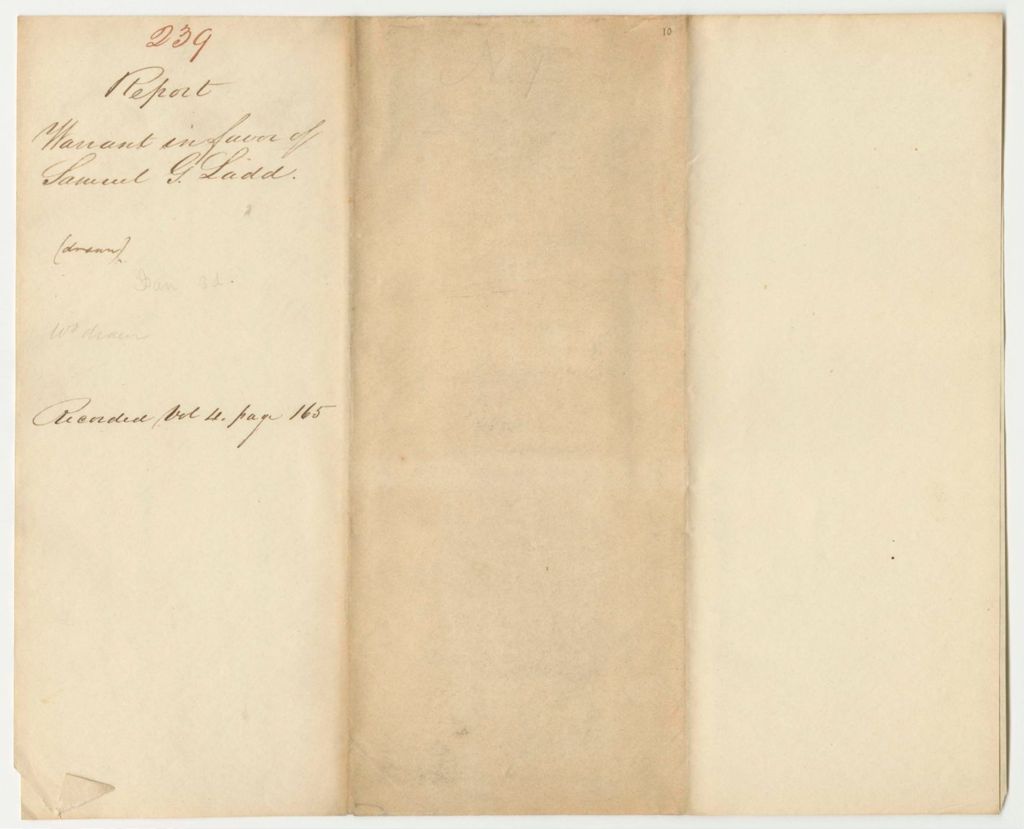 239
Report
Warrant in favor of
Samuel G. Ladd.
(drawn)
Jan 3d.
Wt drawn
Recorded Vol 4. page 165
10